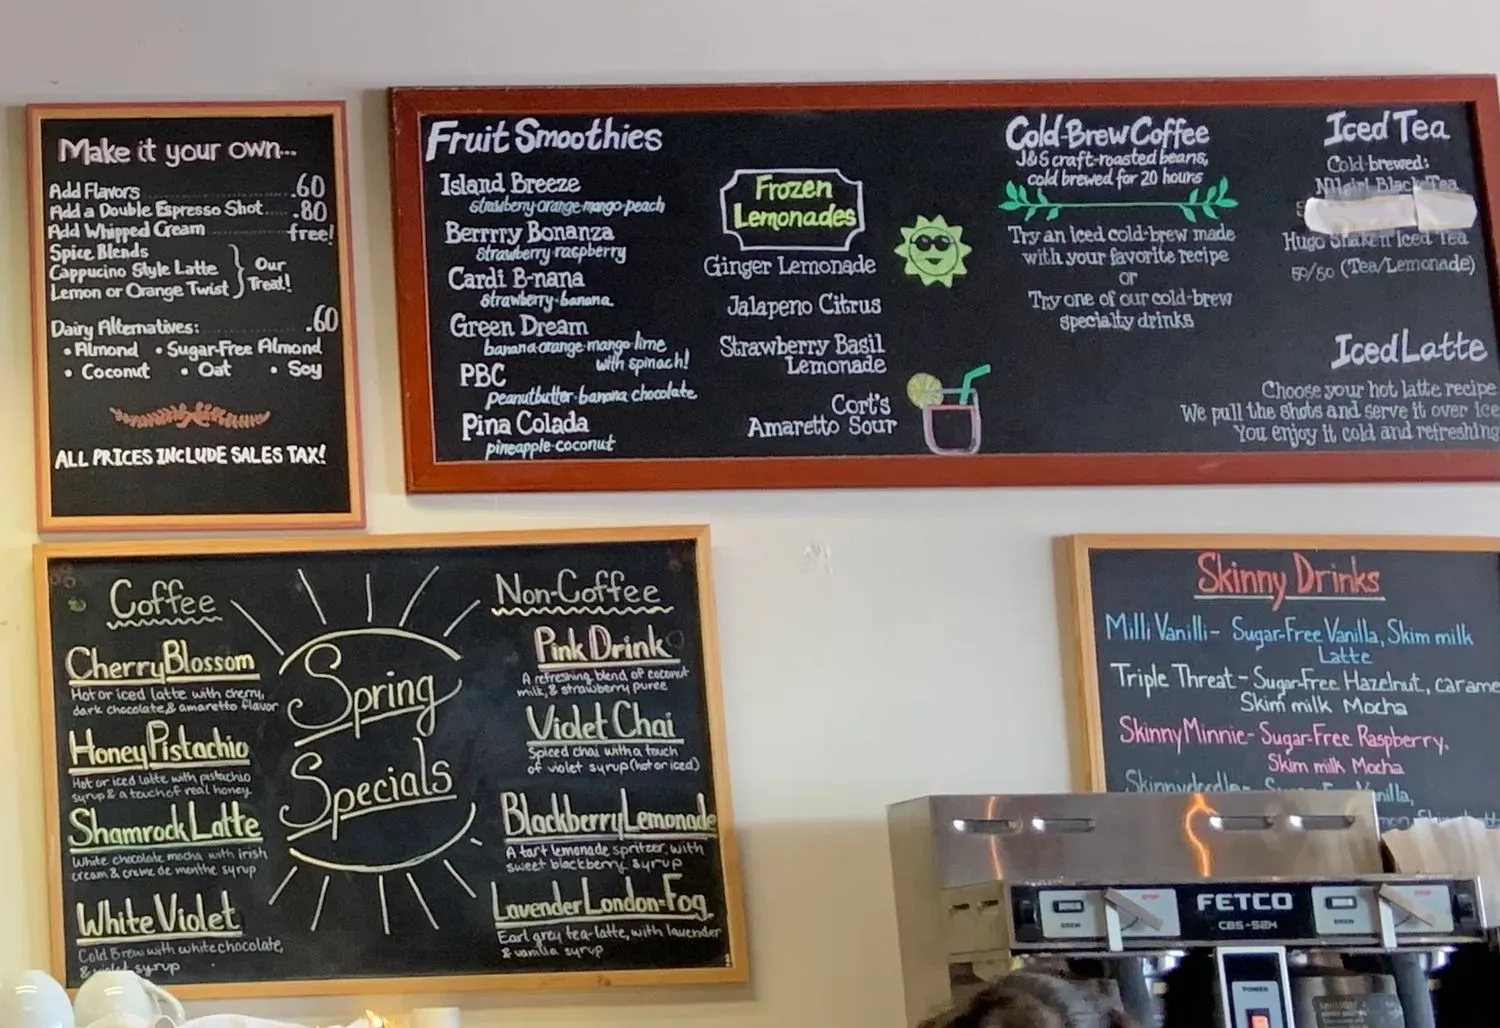 Make it your own...
Add Flavors .60
Add a Double Espresso Shot .80
Add Whipped Cream free!
Spice Blends
Cappucino Style Latte
Lemon or Orange Twist
Our
Treat!
Dairy Alternatives: .60
• Almond • Sugar-Free Almond
• Coconut • Oat • Soy
ALL PRICES INCLUDE SALES TAX!
Fruit Smoothies
Island Breeze
strawberry-orange-mango-peach
Berrrry Bonanza
strawberry-raspberry
Cardi B-nana
strawberry-banana
Green Dream
banana-orange-mango-lime
with spinach!
PBC
peanutbutter-banana chocolate
Pina Colada
pineapple-coconut
Frozen
Lemonades
Ginger Lemonade
Jalapeno Citrus
Strawberry Basil
Lemonade
Cort's
Amaretto Sour
Cold-Brew Coffee
J&S craft-roasted beans,
cold brewed for 20 hours
Try an iced cold-brew made
with your favorite recipe
or
Try one of our cold-brew
specialty drinks
Iced Tea
Cold-brewed:
Nilgiri Black Tea
Hugo Shake'n Iced Tea
50/50 (Tea/Lemonade)
Iced Latte
Choose your hot latte recipe
We pull the shots and serve it over ice
You enjoy it cold and refreshing
Coffee
Cherry Blossom
Hot or iced latte with cherry,
dark chocolate & amaretto flavor
Honey Pistachio
Hot or iced latte with pistachio
syrup & a touch of real honey.
Shamrock Latte
White chocolate mocha with irish
cream & creme de menthe syrup
White Violet
Cold Brew with white chocolate,
& violet syrup
Spring
Specials
Non-Coffee
Pink Drink
A refreshing blend of coconut
milk, & strawberry puree
Violet Chai
Spiced chai with a touch
of violet syrup (hot or iced)
Blackberry Lemonade
A tart lemonade spritzer with
sweet blackberry syrup
Lavender London-Fog
Earl grey tea-latte, with lavender
& vanilla syrup
Skinny Drinks
Milli Vanilli- Sugar-Free Vanilla, Skim milk
Latte
Triple Threat- Sugar-Free Hazelnut, carame
Skim milk Mocha
Skinny Minnie- Sugar-Free Raspberry,
Skim milk Mocha
Skinnydoodle-
FETCO
CBS-52H
BREW
BREW
POWER